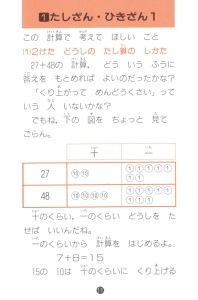 1 たしざん・ひきざん 1
この 計算で 考えて ほしい こと
(1)2けた どうしの たし算の しかた
27+48の 計算。 どう いう ふうに
答えを もとめれば よいのだったかな?
「くり上がって めんどうくさい」って
いう 人 いないかな?
でもね、下の 図を ちょっと 見て
ごらん。
十 一
27 ⑩⑩ ①①①①①①①
48 ⑩⑩⑩⑩ ①①①①①①①①
十のくらい、一のくらい どうしを た
せば いいんだね。
一のくらいから 計算を はじめるよ。
7+8=15
15の 10は 十のくらいに くり上げる